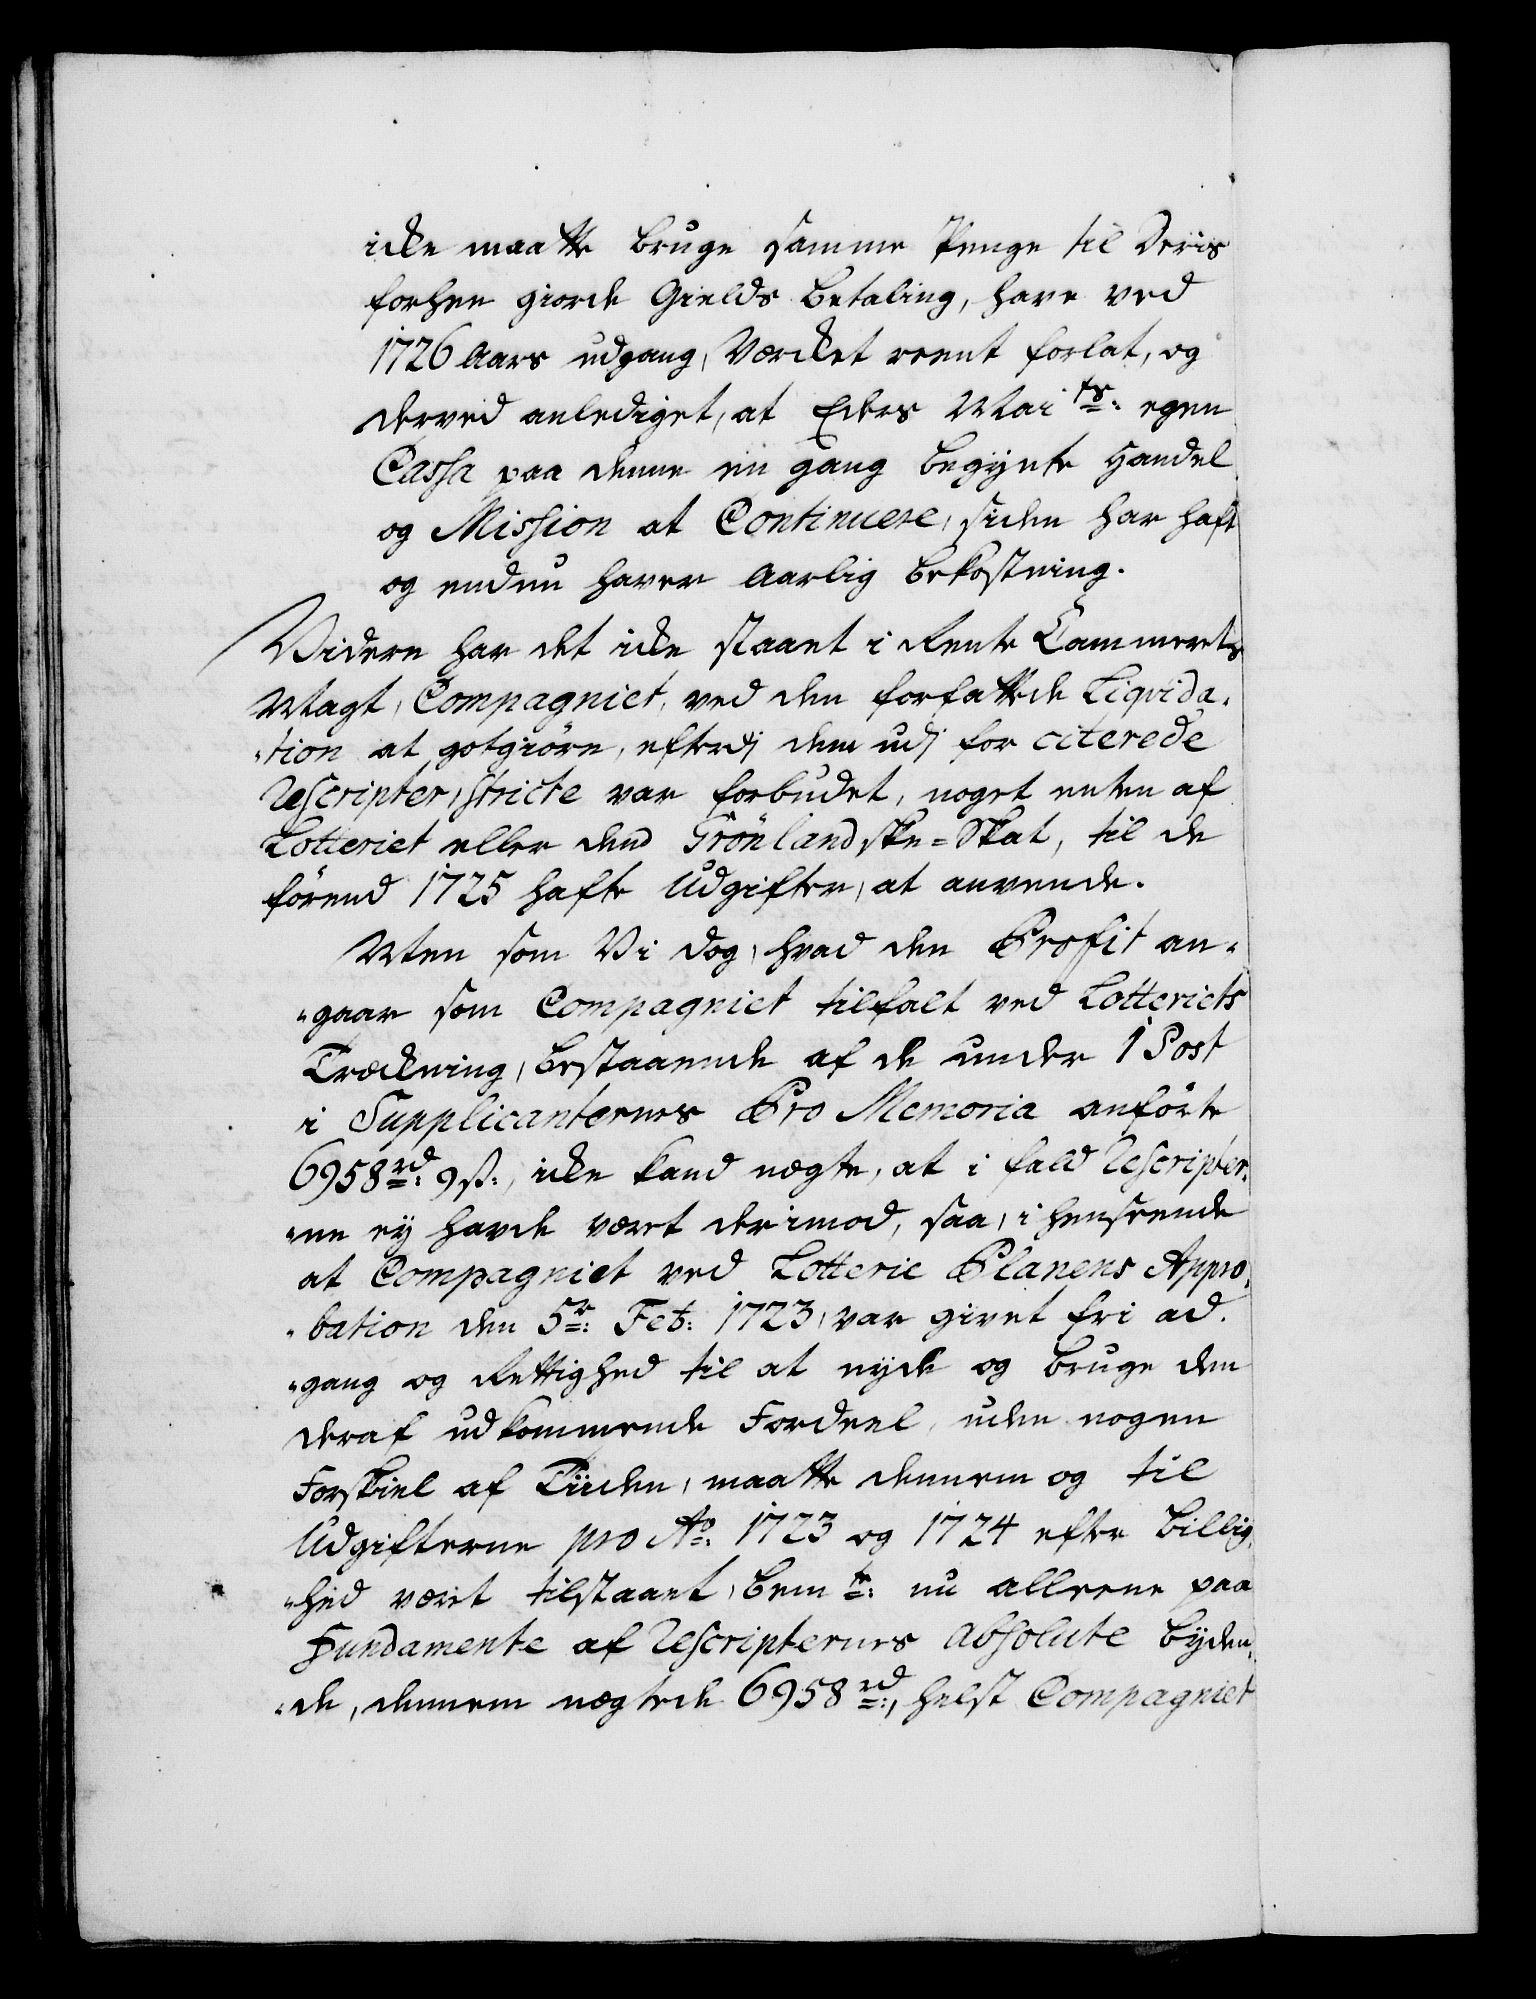 icke maatte bruge samme Penge til Deris
forhen giorde Gields betaling, have ved
1726 Aars udgang, Værcket reent forlat, og
derved anlediget, at Eders Mai ts: egen
Cassa paa denne en gang begynte Handel
og Mission at Continuere, siden har haft
og endnu haver Aarlig bekostning.
Videre har det icke staaet i Rente Cammerets
Magt, Compagniet, ved den forfattede Liqvida-
-tion at gotgiøre, efterdi dem udj for citerede
Rescripter, stricte var forbudet, noget enten af
Lotteriet eller dend Grönlandske=Skat, til de
förend 1725 hafte Udgifter, at anvende.
Men som Vi dog, hvad den Profit an-
-gaar som Compagniet tilfalt ved Lotteriets
Træckning, bestaaende af de under 1 Post
i Supplicanternes Pro Memoria anförte
6958 rd: 9 ß:, icke kand nægte, at i fald Rescripter-
-ne ey havde været derimod, saa, i henseende
at Compagniet ved Lotterie Planens Appro-
-bation den 5r: Feb: 1723, var givet fri ad-
-gang og Rettighed til at nyde og bruge den
deraf udkommende Fordeel, uden nogen
Forskiel af Tiiden, maatte dennem og til
Udgifterne pro Ao: 1723 og 1724 efter billig-
-hed været tilstaaet, bem te: nu alleene paa
Fundamente af Rescripternes absolute byden-
-de, dennem nægtede 6958 rd:, helst Compagniet